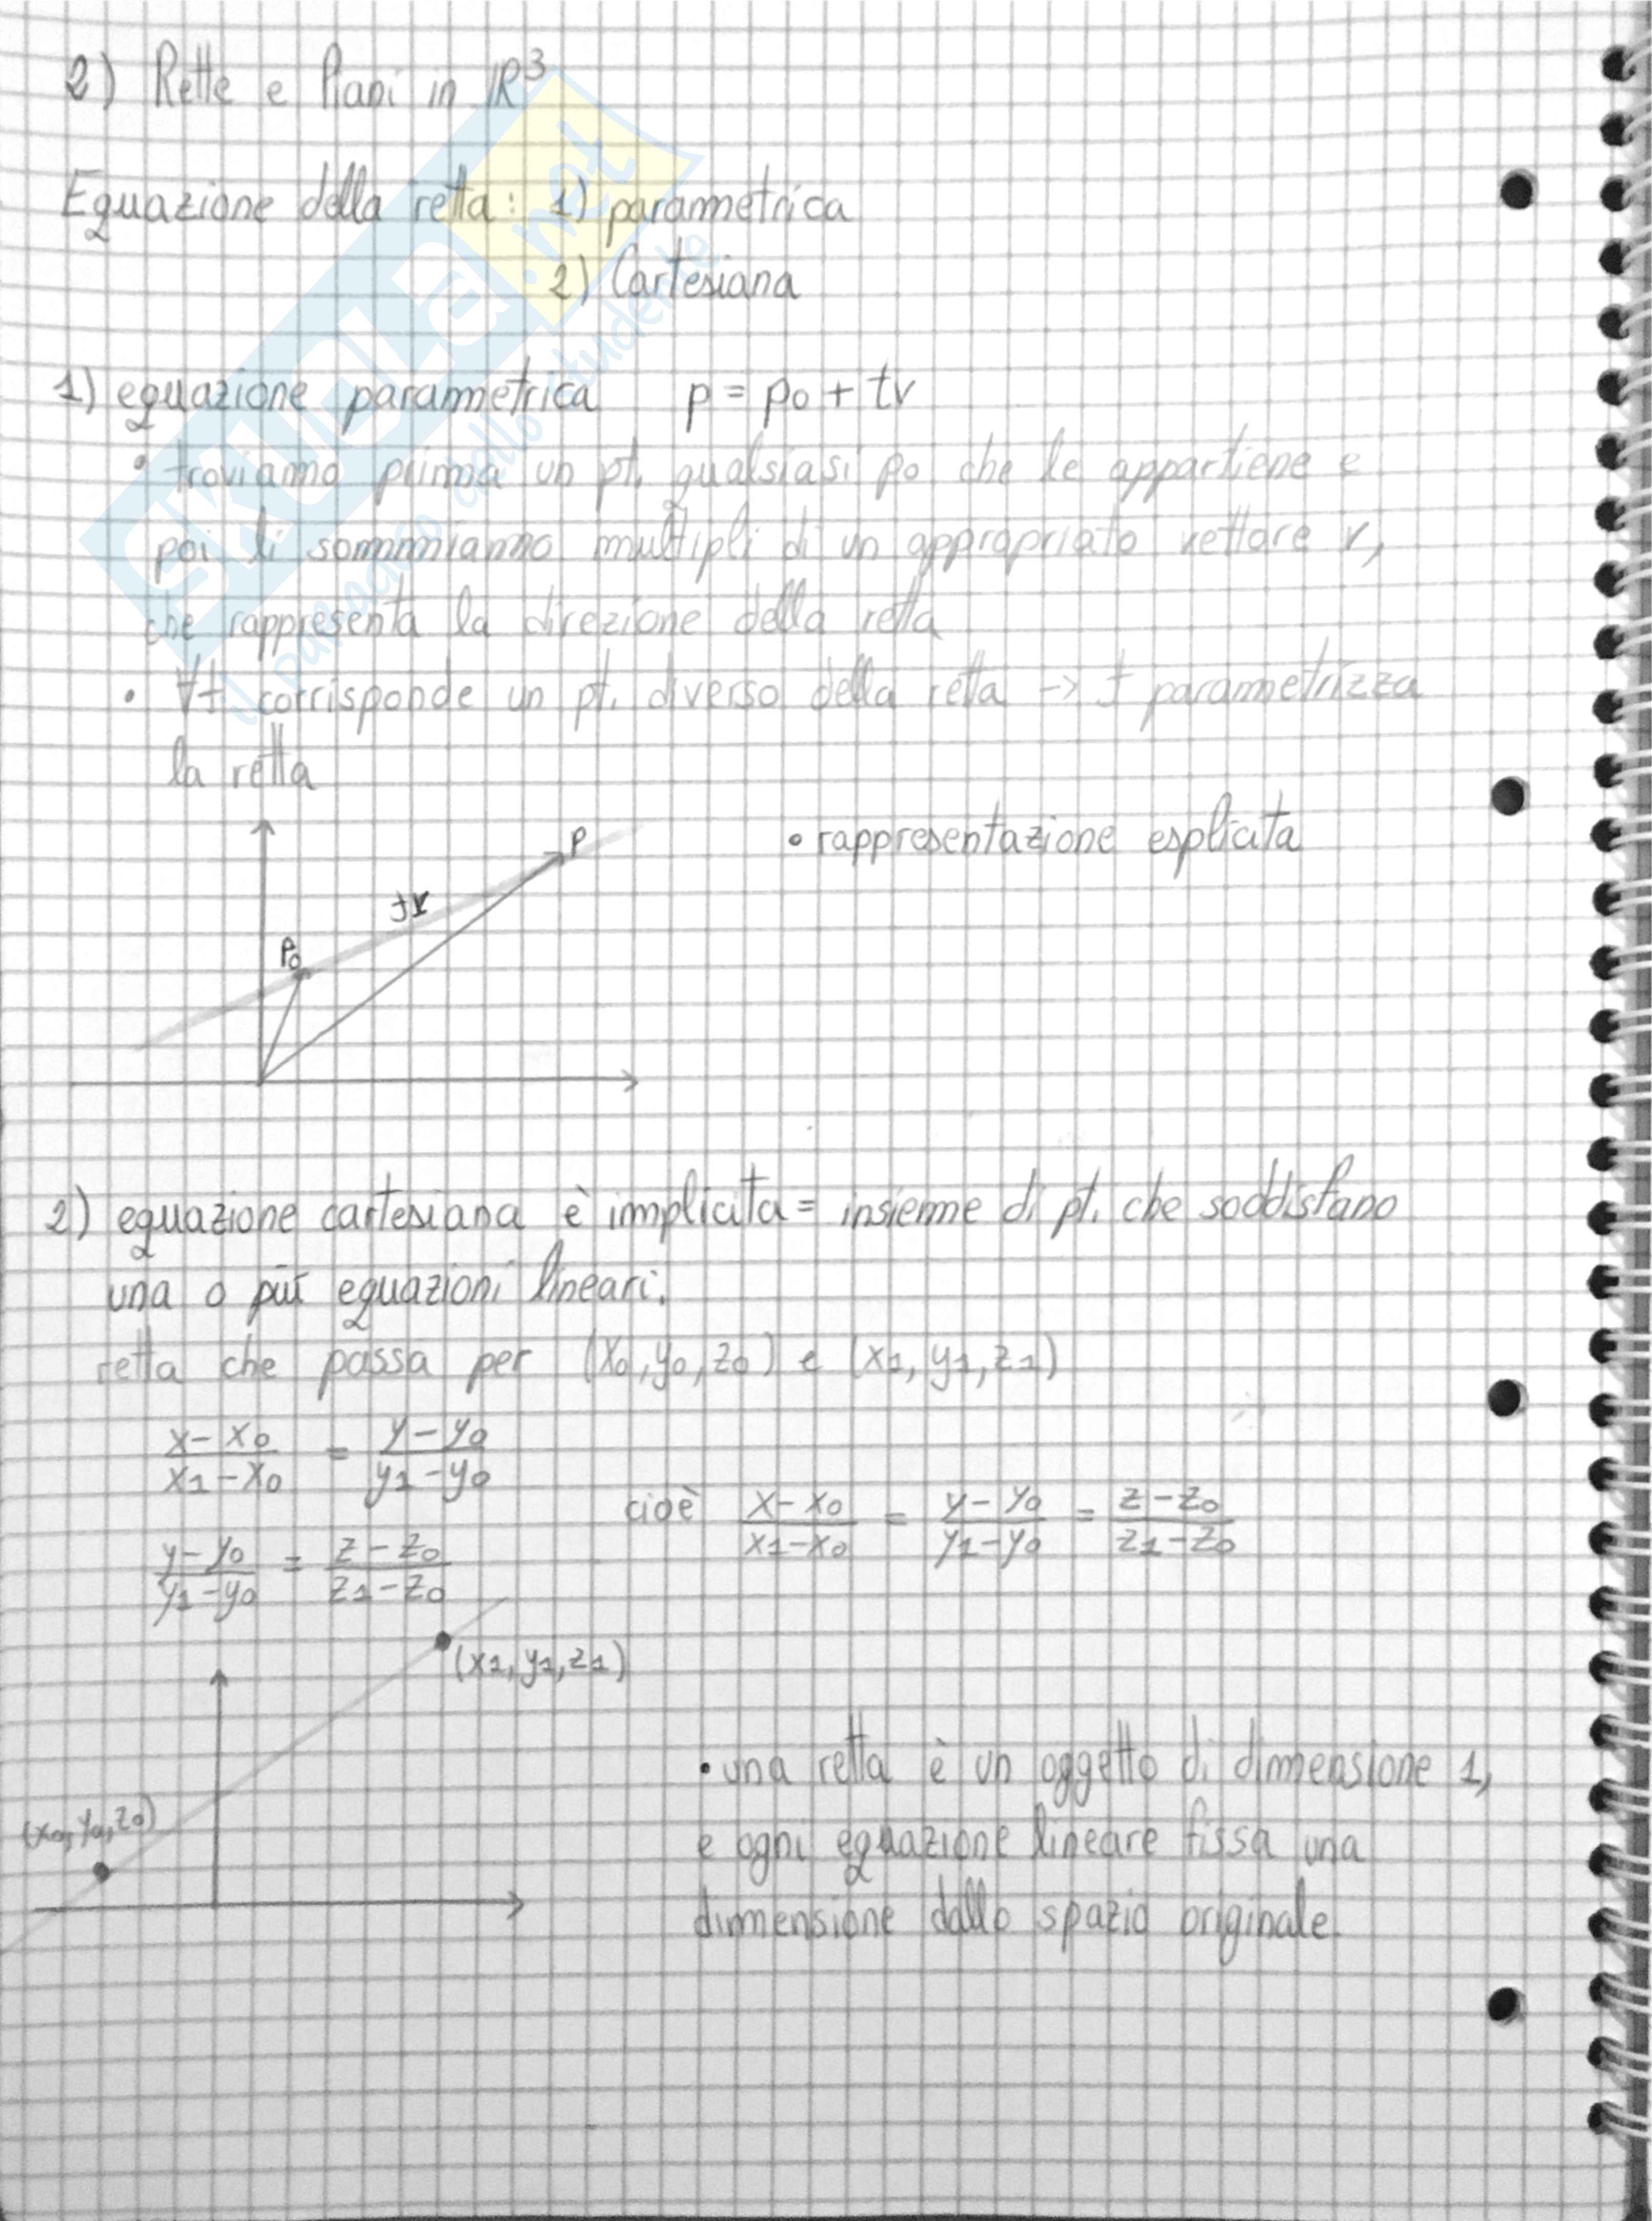 2) Rette e Piani in ℝ³
Equazione della retta: 1) parametrica
2) Cartesiana
1) equazione parametrica p = p₀ + tv
• troviamo prima un pt. qualsiasi p₀ che le appartiene e
poi li sommiamo multipli di un appropriato vettore v,
che rappresenta la direzione della retta
• ∀t corrisponde un pt. diverso della retta -> t parametrizza
la retta
• rappresentazione esplicita
P
tv
P₀
2) equazione cartesiana è implicita = insieme di pt. che soddisfano
una o più equazioni lineari.
retta che passa per (x₀, y₀, z₀) e (x₁, y₁, z₁)
(x - x₀)/(x₁ - x₀) = (y - y₀)/(y₁ - y₀)
cioè (x - x₀)/(x₁ - x₀) = (y - y₀)/(y₁ - y₀) = (z - z₀)/(z₁ - z₀)
(y - y₀)/(y₁ - y₀) = (z - z₀)/(z₁ - z₀)
(x₁, y₁, z₁)
(x₀, y₀, z₀)
• una retta è un oggetto di dimensione 1,
e ogni equazione lineare fissa una
dimensione dallo spazio originale.
SKUOLA.net
il paradiso dello studente